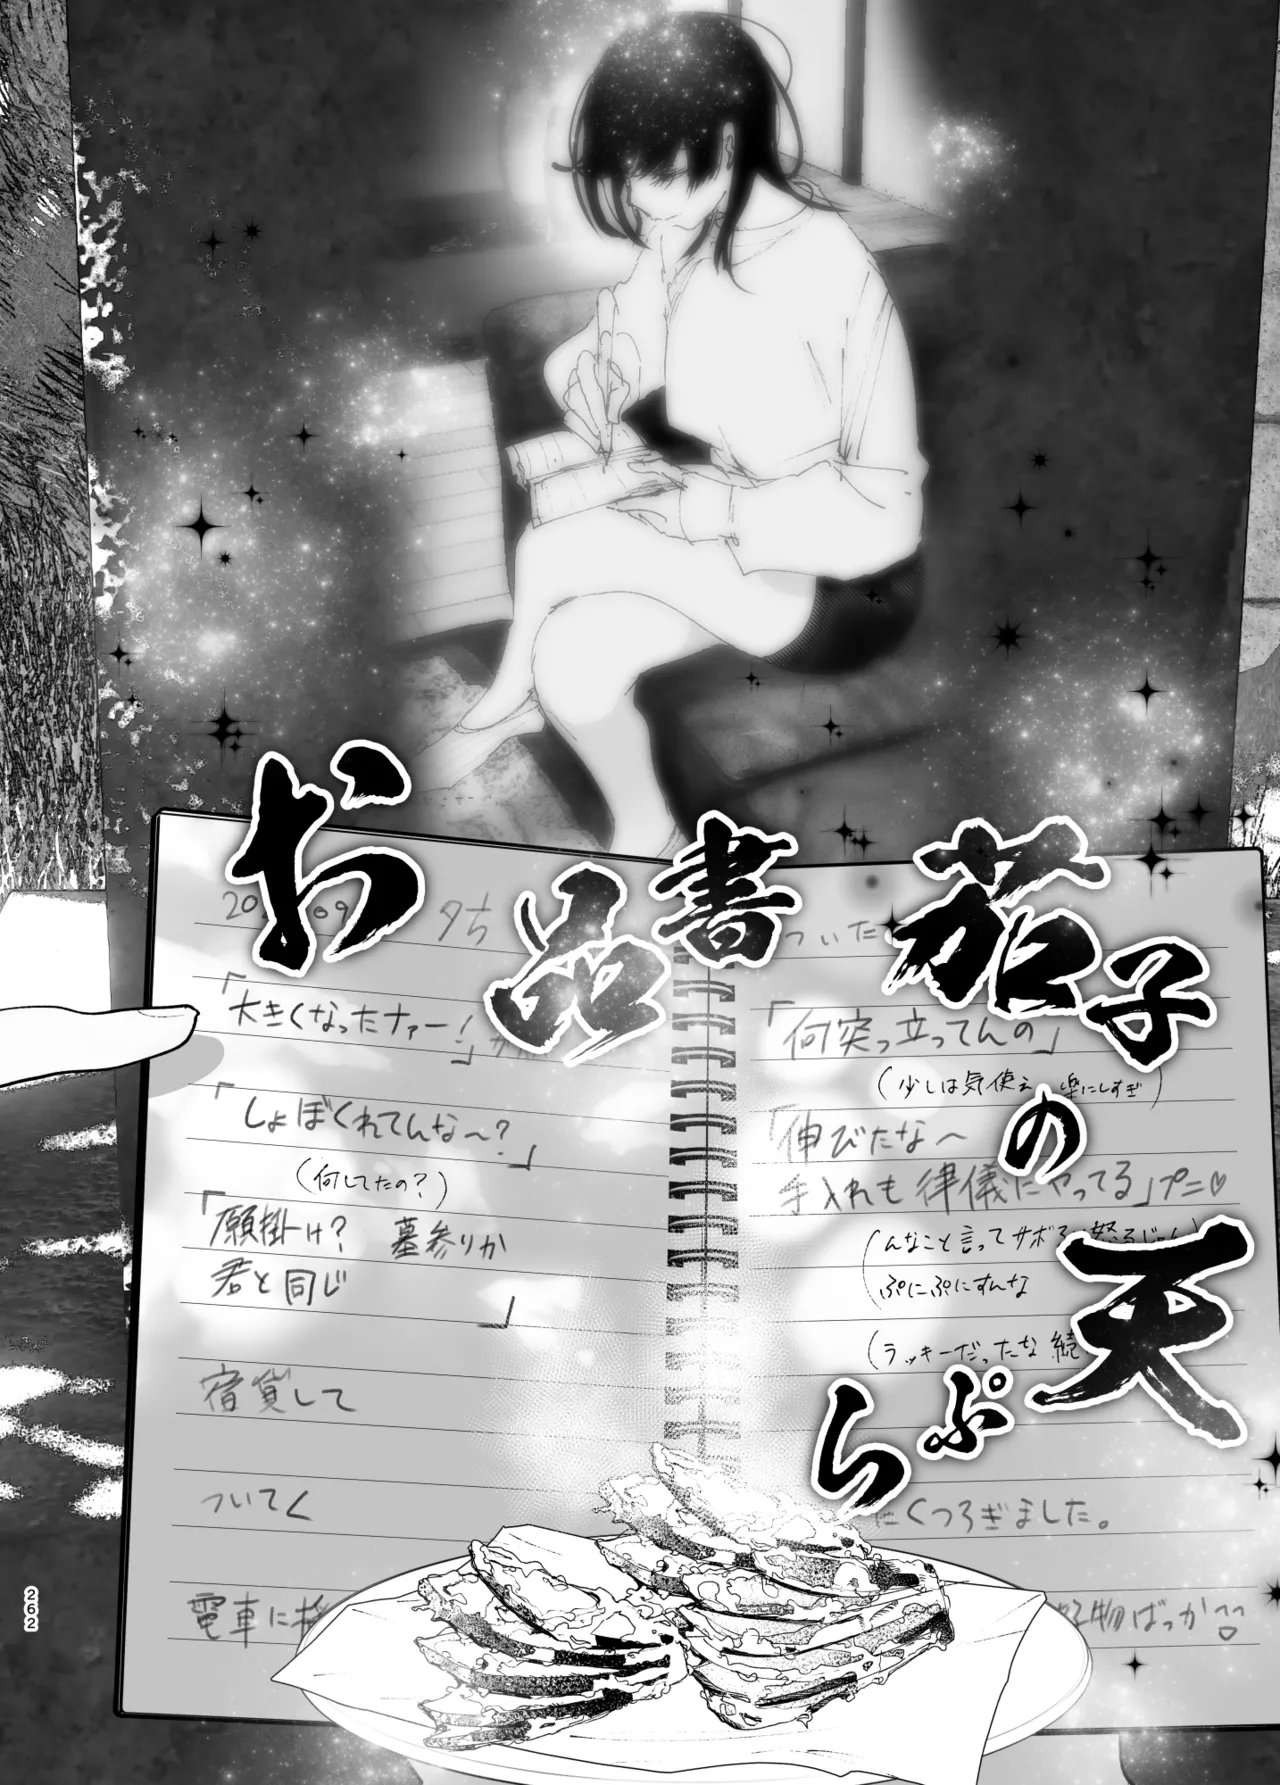 お品書
茄子の
天ぷら
タち
「大きくなったナァー!」
「しょぼくれてんな〜?」
(何してたの?)
「願掛け? 墓参りか
君と同じ」
宿貸して
ついてく
電車に
ついた
「何突っ立ってんの」
(少しは気使え 楽にしすぎ)
「伸びたな〜
手入れも律儀にやってる」プニ♡
(んなこと言ってサボると怒るじゃん)
(ぷにぷにすんな
(ラッキーだったな 続
にくつろぎました。
好物ばっか
262